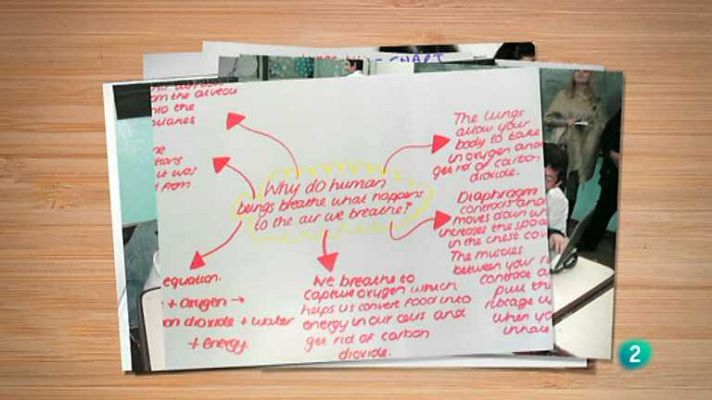 CHART
from the alveoli
into the
The lungs
allow your
body to take
in oxygen and
get rid of carbon
dioxide.
it was
from
Why do human
beings breathe what happens
to the air we breathe?
Diaphragm
contracts and
moves down
increases the space
in the chest
The muscles
between your
contract
pull
ribcage
when
inhale
equation.
+ Oxygen →
dioxide + water
+ Energy
We breathe to
capture oxygen which
helps us convert food into
energy in our cells and
get rid of carbon
dioxide.
2